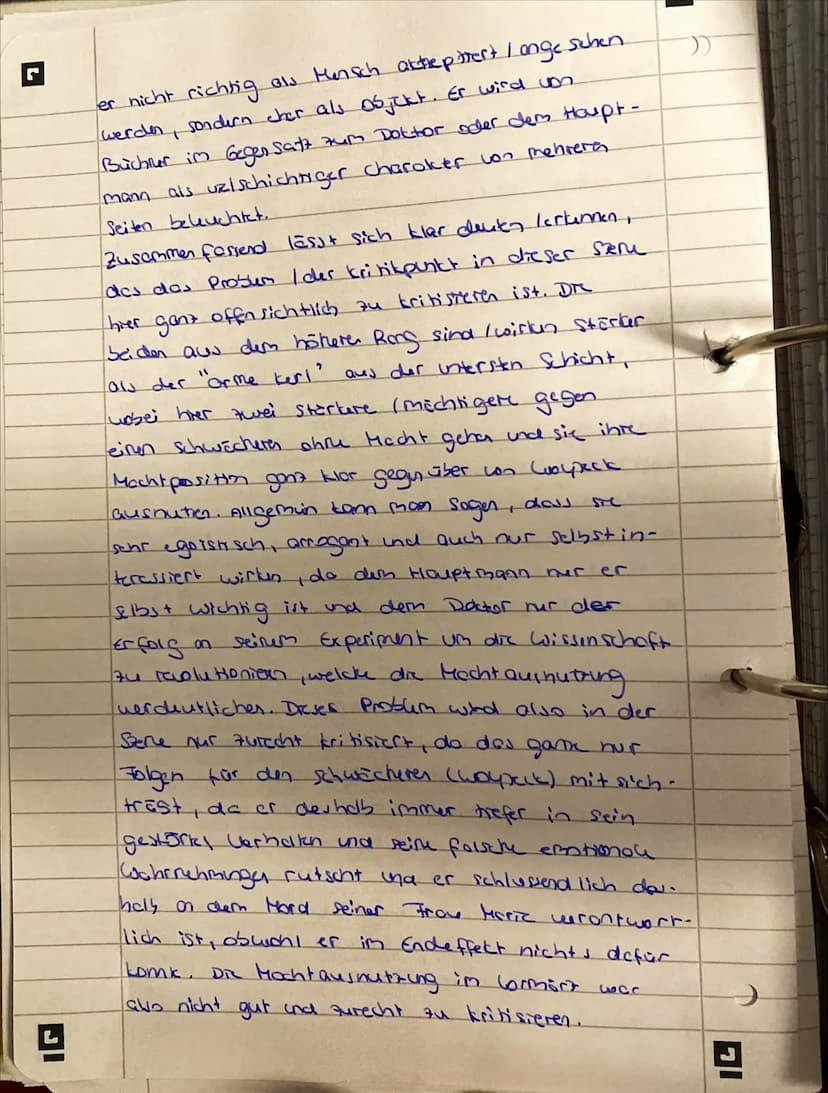 er nicht richtig als Mensch akzeptiert / angesehen
werden, sondern eher als Objekt. Er wird von
Büchner im Gegensatz zum Doktor oder dem Haupt-
mann als vielschichtiger Charakter von mehreren
Seiten beleuchtet.
Zusammenfassend lässt sich klar deuten / erkennen,
das das Problem / der Kritikpunkt in dieser Szene
hier ganz offensichtlich zu kritisieren ist. Die
beiden aus dem höheren Rang sind / wirken stärker
als der "arme Kerl" aus der untersten Schicht,
wobei hier zwei stärkere / mächtigere gegen
einen schwächeren ohne Macht gehen und sie ihre
Machtposition ganz klar gegenüber von Woyzeck
ausnutzen. Allgemein kann man sagen, dass sie
sehr egoistisch, arrogant und auch nur selbstin-
teressiert wirken, da dem Hauptmann nur er
selbst wichtig ist und dem Doktor nur der
Erfolg an seinem Experiment um die Wissenschaft
zu revolutionieren, welche die Machtausnutzung
verdeutlichen. Dieses Problem wird also in der
Szene nur zurecht kritisiert, da das ganze nur
Folgen für den schwächeren (Woyzeck) mit sich
trägt, da er deshalb immer tiefer in sein
gestörtes Verhalten und seine falsche emotionale
Wahrnehmung rutscht und er schlussendlich des-
halb an dem Mord seiner Frau Marie verantwort-
lich ist, obwohl er im Endeffekt nichts dafür
konnte. Die Machtausnutzung im Vormärz war
also nicht gut und zurecht zu kritisieren.